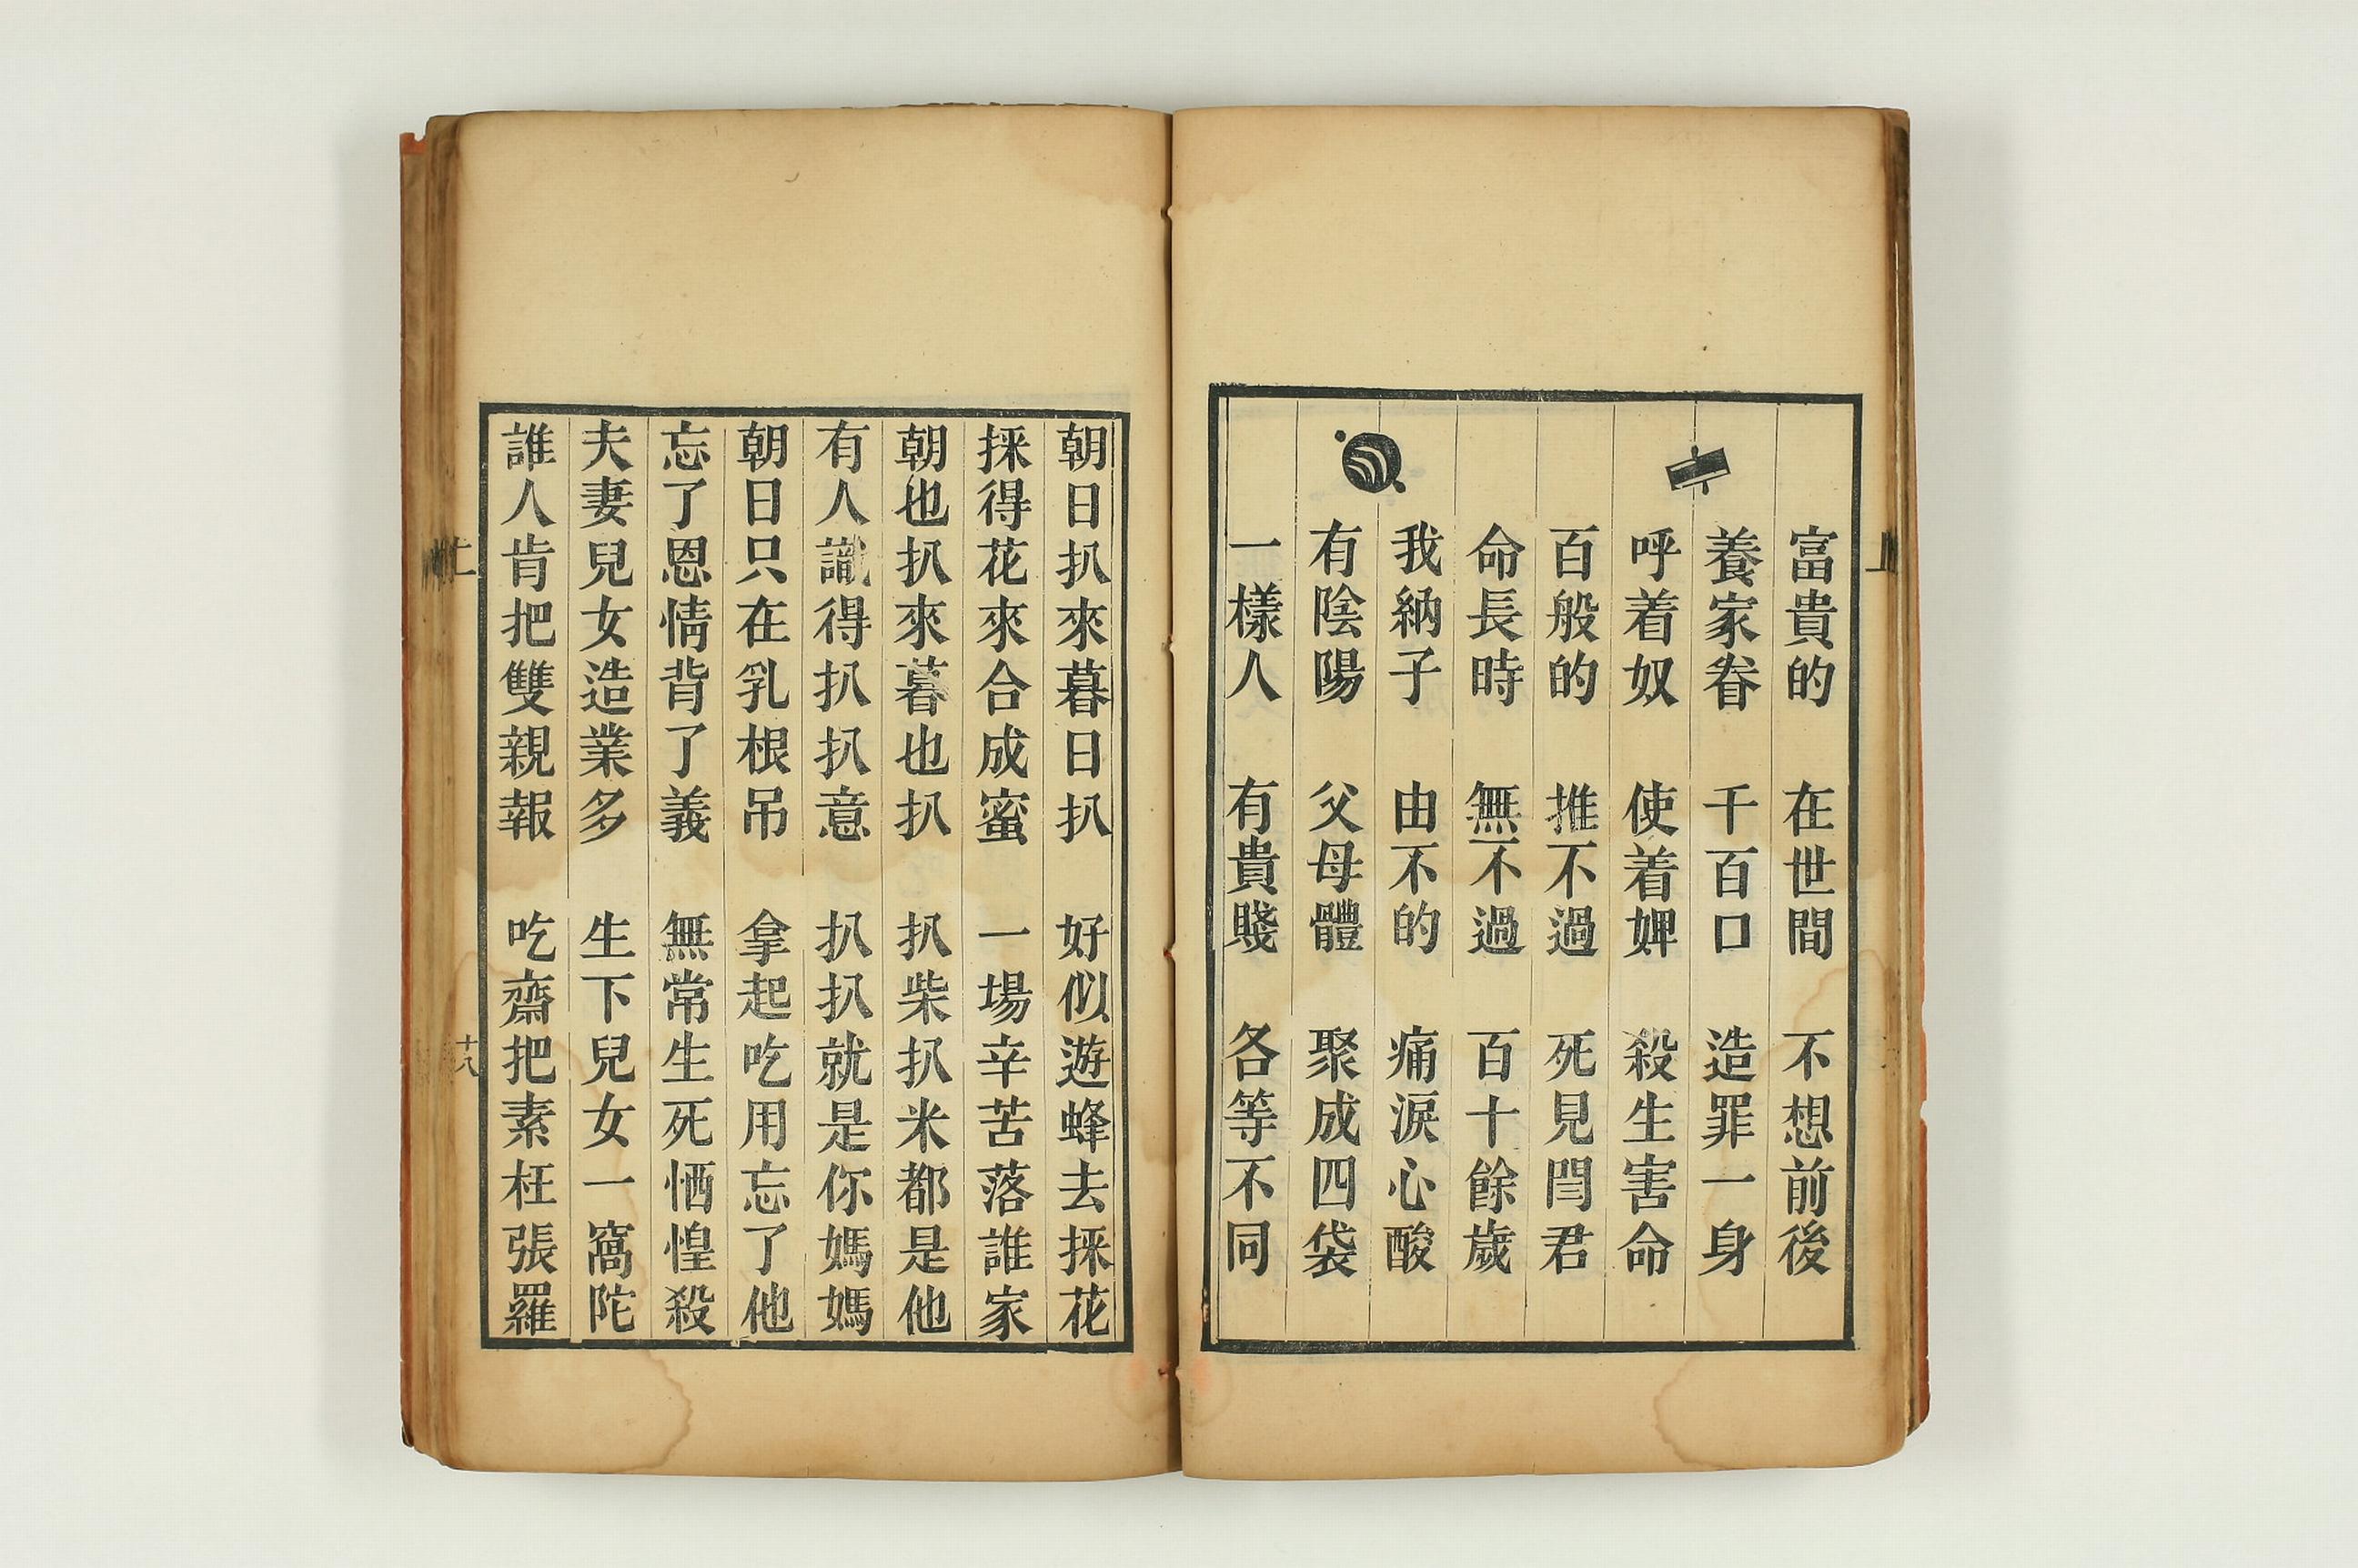 富貴的　在世間　不想前後
養家眷　千百口　造罪一身
呼着奴　使着婢　殺生害命
百般的　推不過　死見閆君
命長時　無不過　百十餘歲
我納子　由不的　痛淚心酸
有陰陽　父母體　聚成四袋
一樣人　有貴賤　各等不同
朝日扒來暮日扒　好似遊蜂去採花
採得花來合成蜜　一場辛苦落誰家
朝也扒來暮也扒　扒柴扒米都是他
有人識得扒扒意　扒扒就是你媽媽
朝日只在乳根吊　拿起吃用忘了他
忘了恩情背了義　無常生死恓惶殺
夫妻兒女造業多　生下兒女一窩陀
誰人肯把雙親報　吃齋把素枉張羅
上
十八